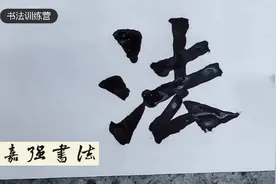 书法训练营
法
嘉强书法